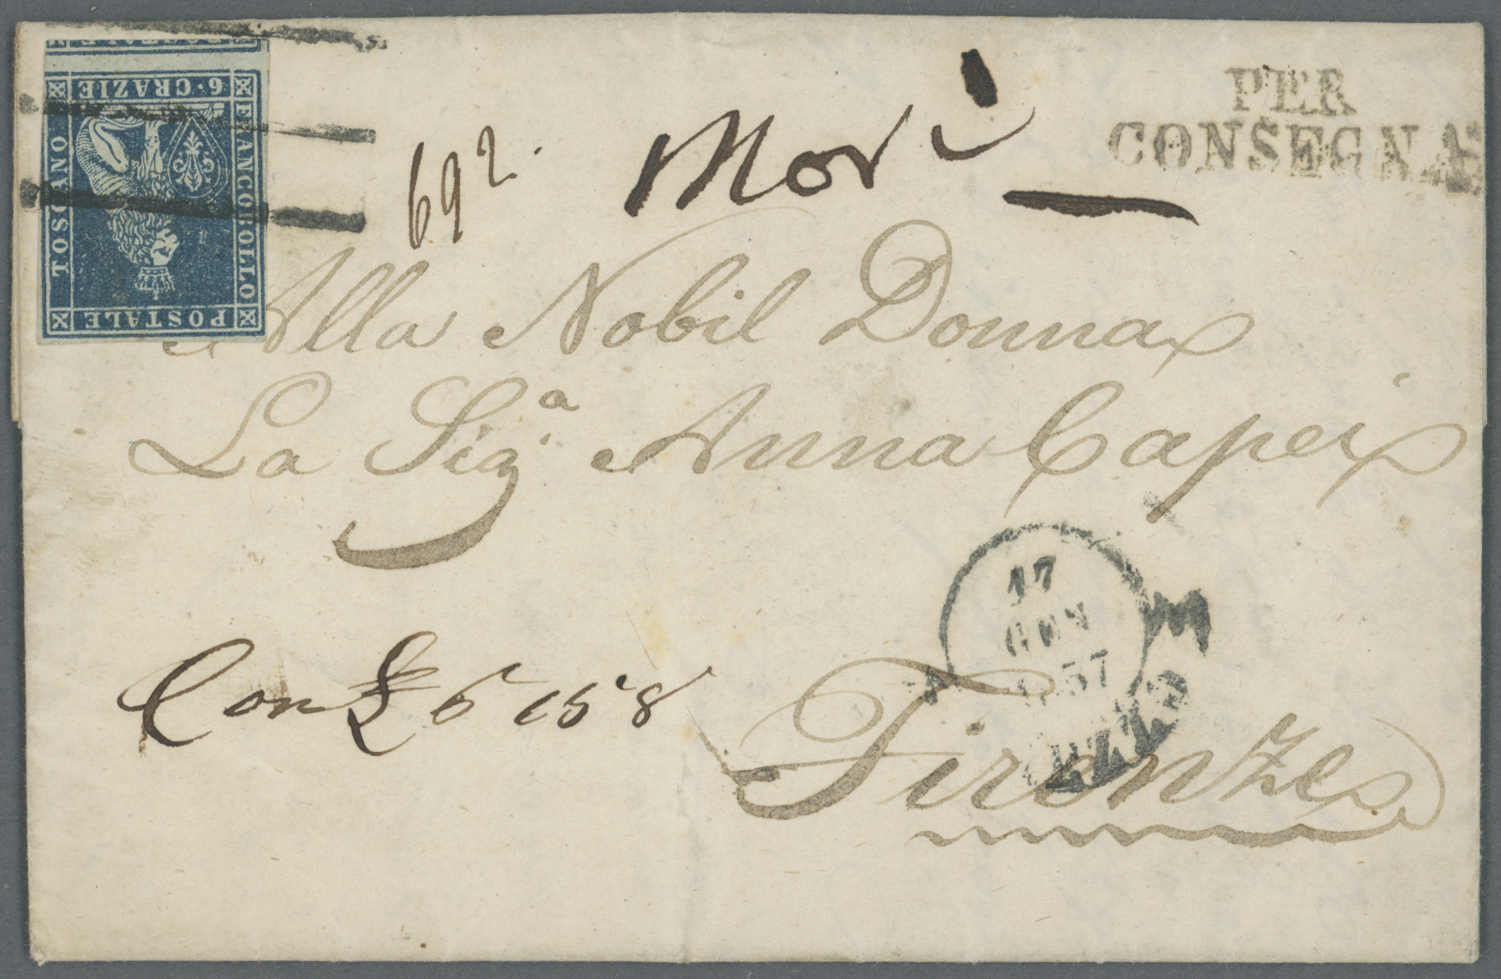 PER
CONSEGNA
6·CRAZIE
FRANCOBOLLO
POSTALE
TOSCANO
692.
Mori
Alla Nobil Donna
La Sig.ª Anna Capei
17
GEN
1857
Con £ 6 15 8
Firenze